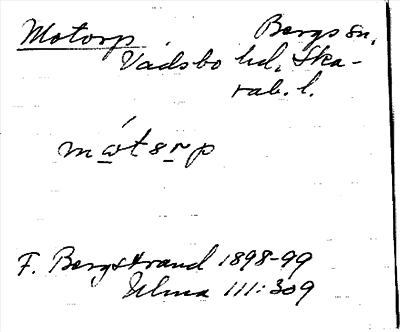 Motorp Bergs sn,
Vadsbo hd, Ska-
rab. l.
mώtsr̲p
F. Bergstrand 1898-99
Ulma 111:309